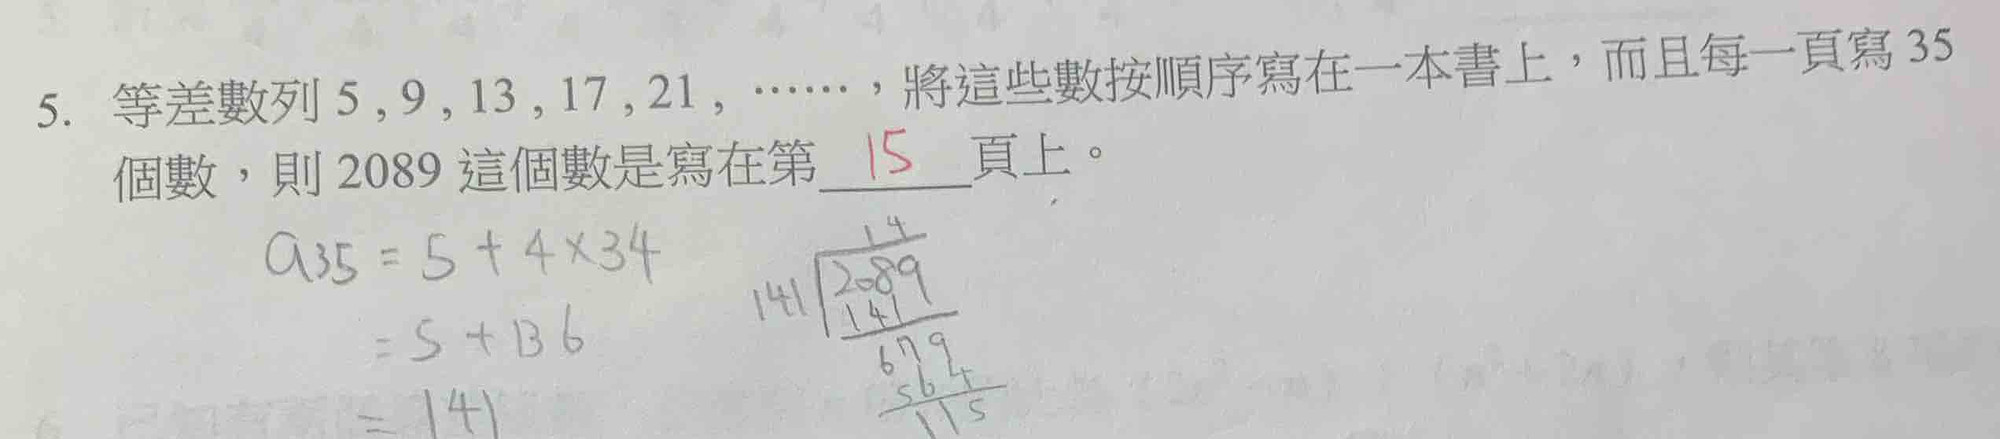 5. 等差數列 5 , 9 , 13 , 17 , 21 , ……，將這些數按順序寫在一本書上，而且每一頁寫 35
個數，則 2089 這個數是寫在第 15 頁上。
a35 = 5 + 4×34
= 5 + 136
= 141
14
141 2089
141
679
564
115